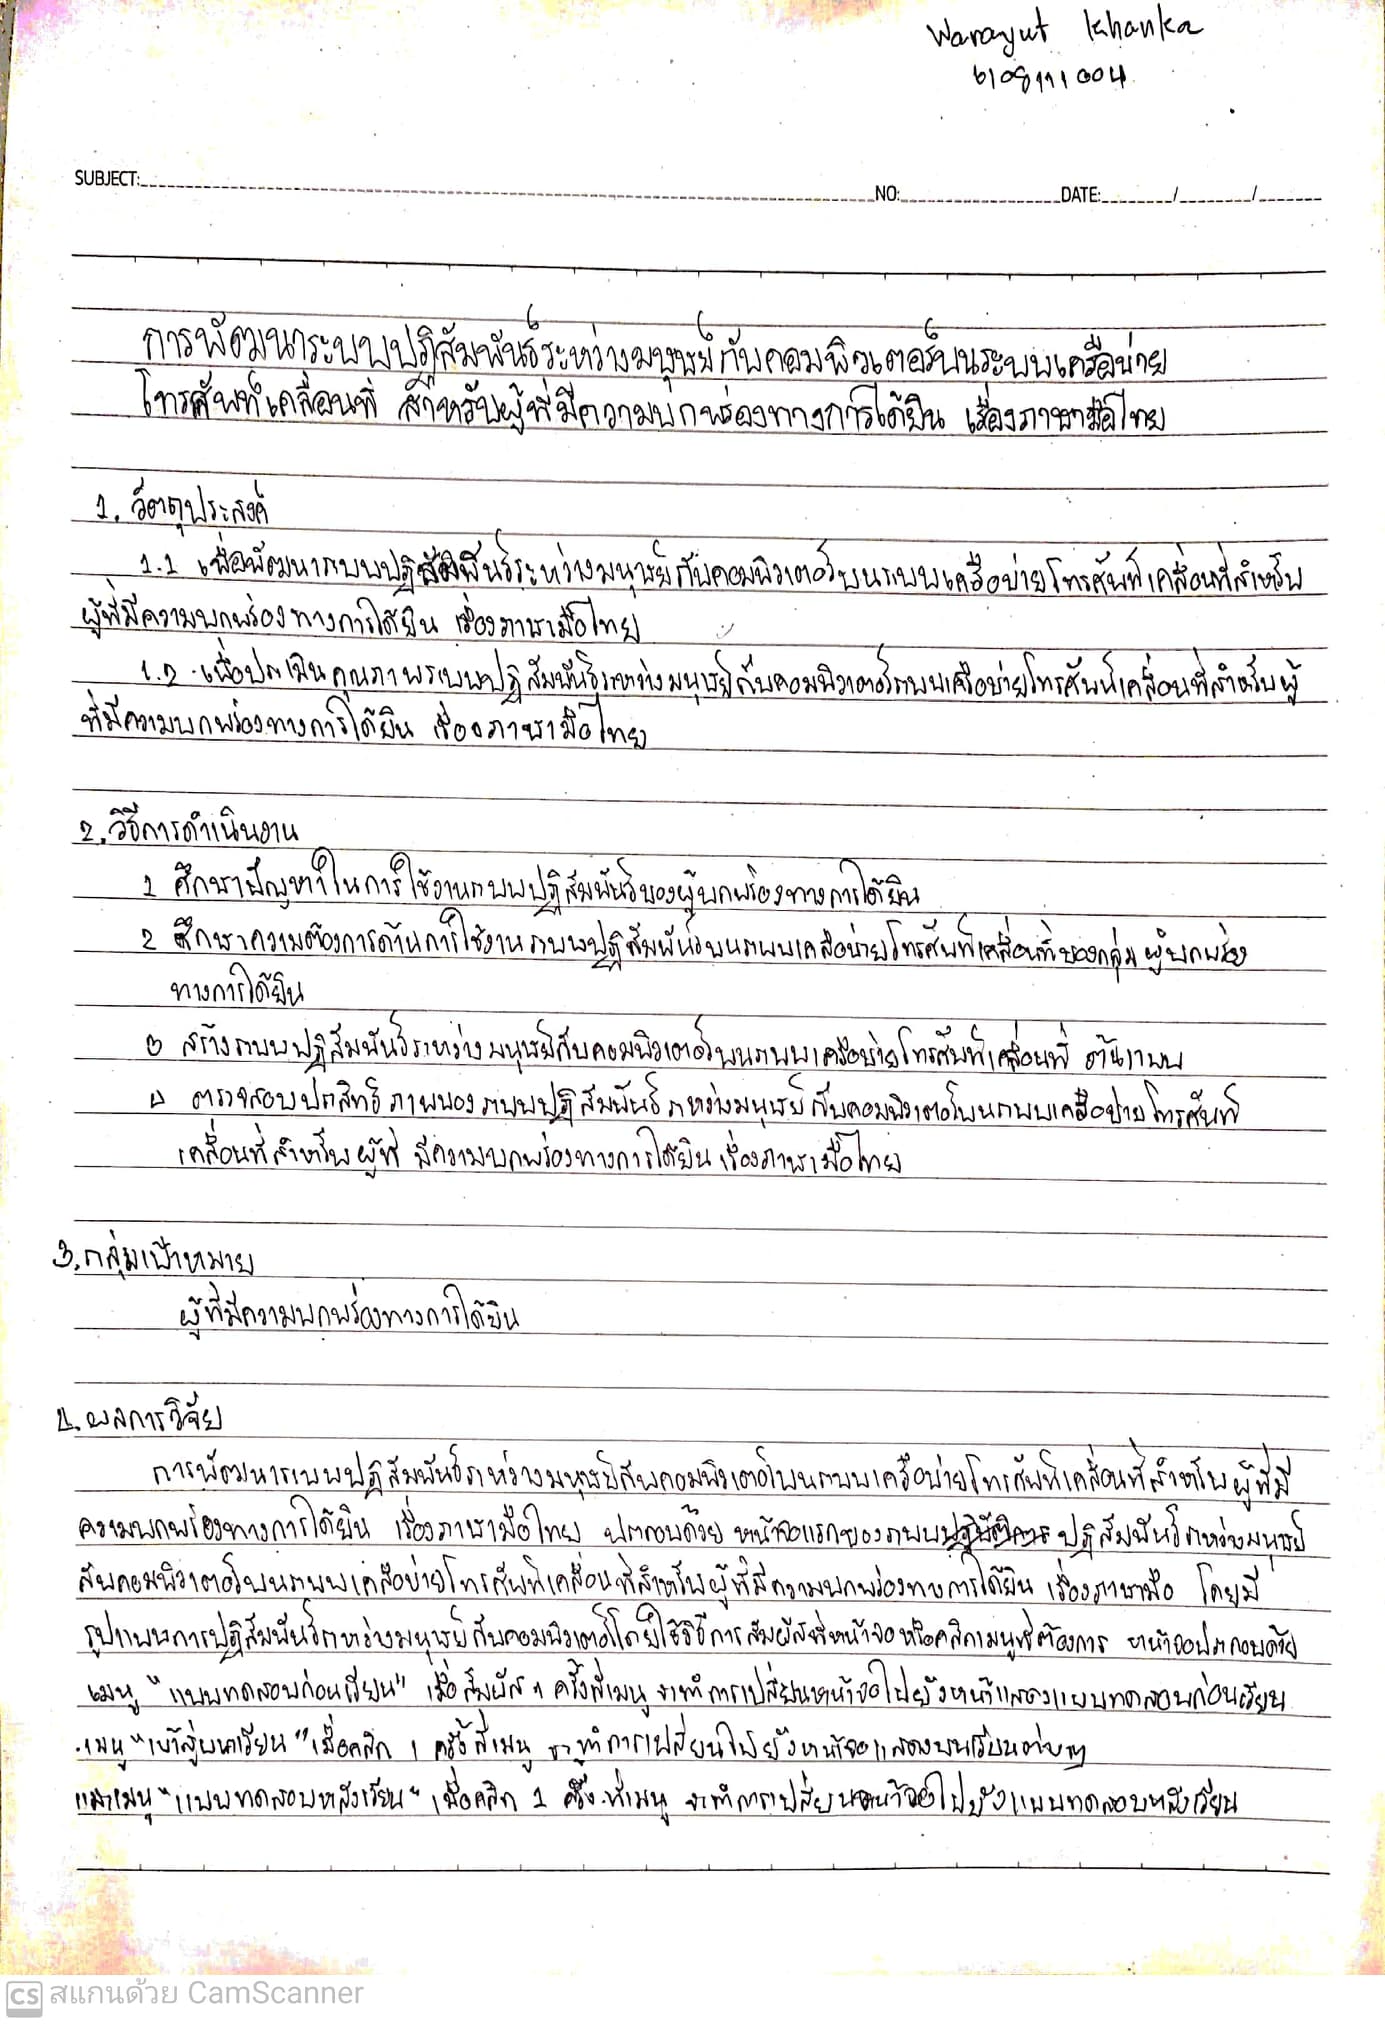 Warayut Khanka
6108111004
SUBJECT: NO: DATE: / /
การพัฒนาระบบปฏิสัมพันธ์ระหว่างมนุษย์กับคอมพิวเตอร์บนระบบเครือข่าย
โทรศัพท์เคลื่อนที่ สำหรับผู้ที่มีความบกพร่องทางการได้ยิน เรื่องภาษามือไทย
1. วัตถุประสงค์
1.1 เพื่อพัฒนาระบบปฏิสัมพันธ์ระหว่างมนุษย์กับคอมพิวเตอร์บนระบบเครือข่ายโทรศัพท์เคลื่อนที่สำหรับ
ผู้ที่มีความบกพร่องทางการได้ยิน เรื่องภาษามือไทย
1.2 เพื่อประเมินคุณภาพระบบปฏิสัมพันธ์ระหว่างมนุษย์กับคอมพิวเตอร์ระบบเครือข่ายโทรศัพท์เคลื่อนที่สำหรับผู้
ที่มีความบกพร่องทางการได้ยิน เรื่องภาษามือไทย
2. วิธีการดำเนินงาน
1 ศึกษาปัญหาในการใช้งานระบบปฏิสัมพันธ์ของผู้บกพร่องทางการได้ยิน
2 ศึกษาความต้องการด้านการใช้งานระบบปฏิสัมพันธ์บนระบบเครือข่ายโทรศัพท์เคลื่อนที่ของกลุ่มผู้บกพร่อง
ทางการได้ยิน
3 สร้างระบบปฏิสัมพันธ์ระหว่างมนุษย์กับคอมพิวเตอร์บนระบบเครือข่ายโทรศัพท์เคลื่อนที่ ต้นแบบ
4 ตรวจสอบประสิทธิภาพของระบบปฏิสัมพันธ์ระหว่างมนุษย์กับคอมพิวเตอร์บนระบบเครือข่ายโทรศัพท์
เคลื่อนที่สำหรับผู้ที่มีความบกพร่องทางการได้ยิน เรื่องภาษามือไทย
3. กลุ่มเป้าหมาย
ผู้ที่มีความบกพร่องทางการได้ยิน
4. ผลการวิจัย
การพัฒนาระบบปฏิสัมพันธ์ระหว่างมนุษย์กับคอมพิวเตอร์บนระบบเครือข่ายโทรศัพท์เคลื่อนที่สำหรับผู้ที่มี
ความบกพร่องทางการได้ยิน เรื่องภาษามือไทย ประกอบด้วย หน้าจอแรกของระบบ ปฏิสัมพันธ์ระหว่างมนุษย์
กับคอมพิวเตอร์บนระบบเครือข่ายโทรศัพท์เคลื่อนที่สำหรับผู้ที่มีความบกพร่องทางการได้ยิน เรื่องภาษามือ โดยมี
รูปแบบการปฏิสัมพันธ์ระหว่างมนุษย์กับคอมพิวเตอร์โดยใช้วิธีการสัมผัสที่หน้าจอหรือคลิกเมนูที่ต้องการ หน้าจอประกอบด้วย
เมนู "แบบทดสอบก่อนเรียน" เมื่อสัมผัส 1 ครั้งที่เมนู จะทำการเปลี่ยนหน้าจอไปยังหน้าแสดงแบบทดสอบก่อนเรียน
เมนู "เข้าสู่บทเรียน" เมื่อคลิก 1 ครั้งที่เมนู จะทำการเปลี่ยนไปยังหน้าจอแสดงบทเรียนต่างๆ
และเมนู "แบบทดสอบหลังเรียน" เมื่อคลิก 1 ครั้ง ที่เมนู จะทำการเปลี่ยนหน้าจอไปยังแบบทดสอบหลังเรียน
CS สแกนด้วย CamScanner